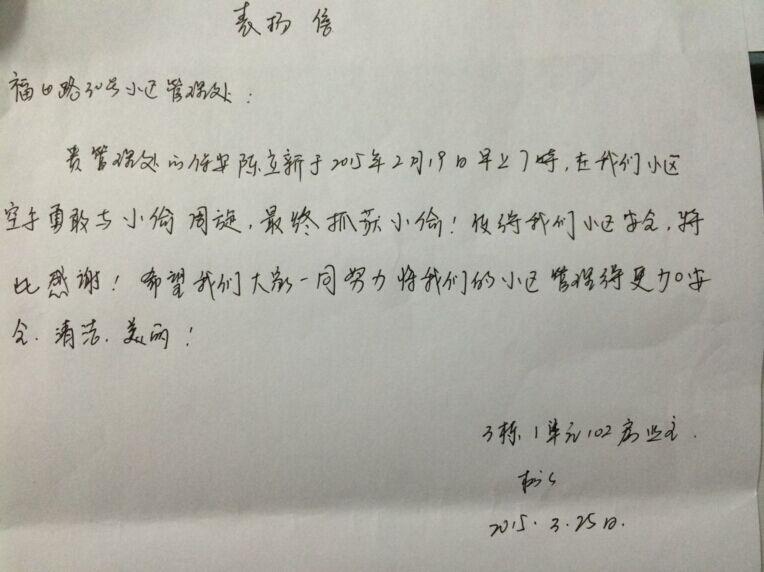 表扬信
福田路30号小区管理处:
贵管理处的保安陈立新于2015年2月19日早上7时,在我们小区
空手勇敢与小偷周旋,最终抓获小偷!使得我们小区安全,特
此感谢!希望我们大家一同努力将我们的小区管理得更加安
全.清洁.美丽!
3栋1单元102房业主.
2015.3.25日.